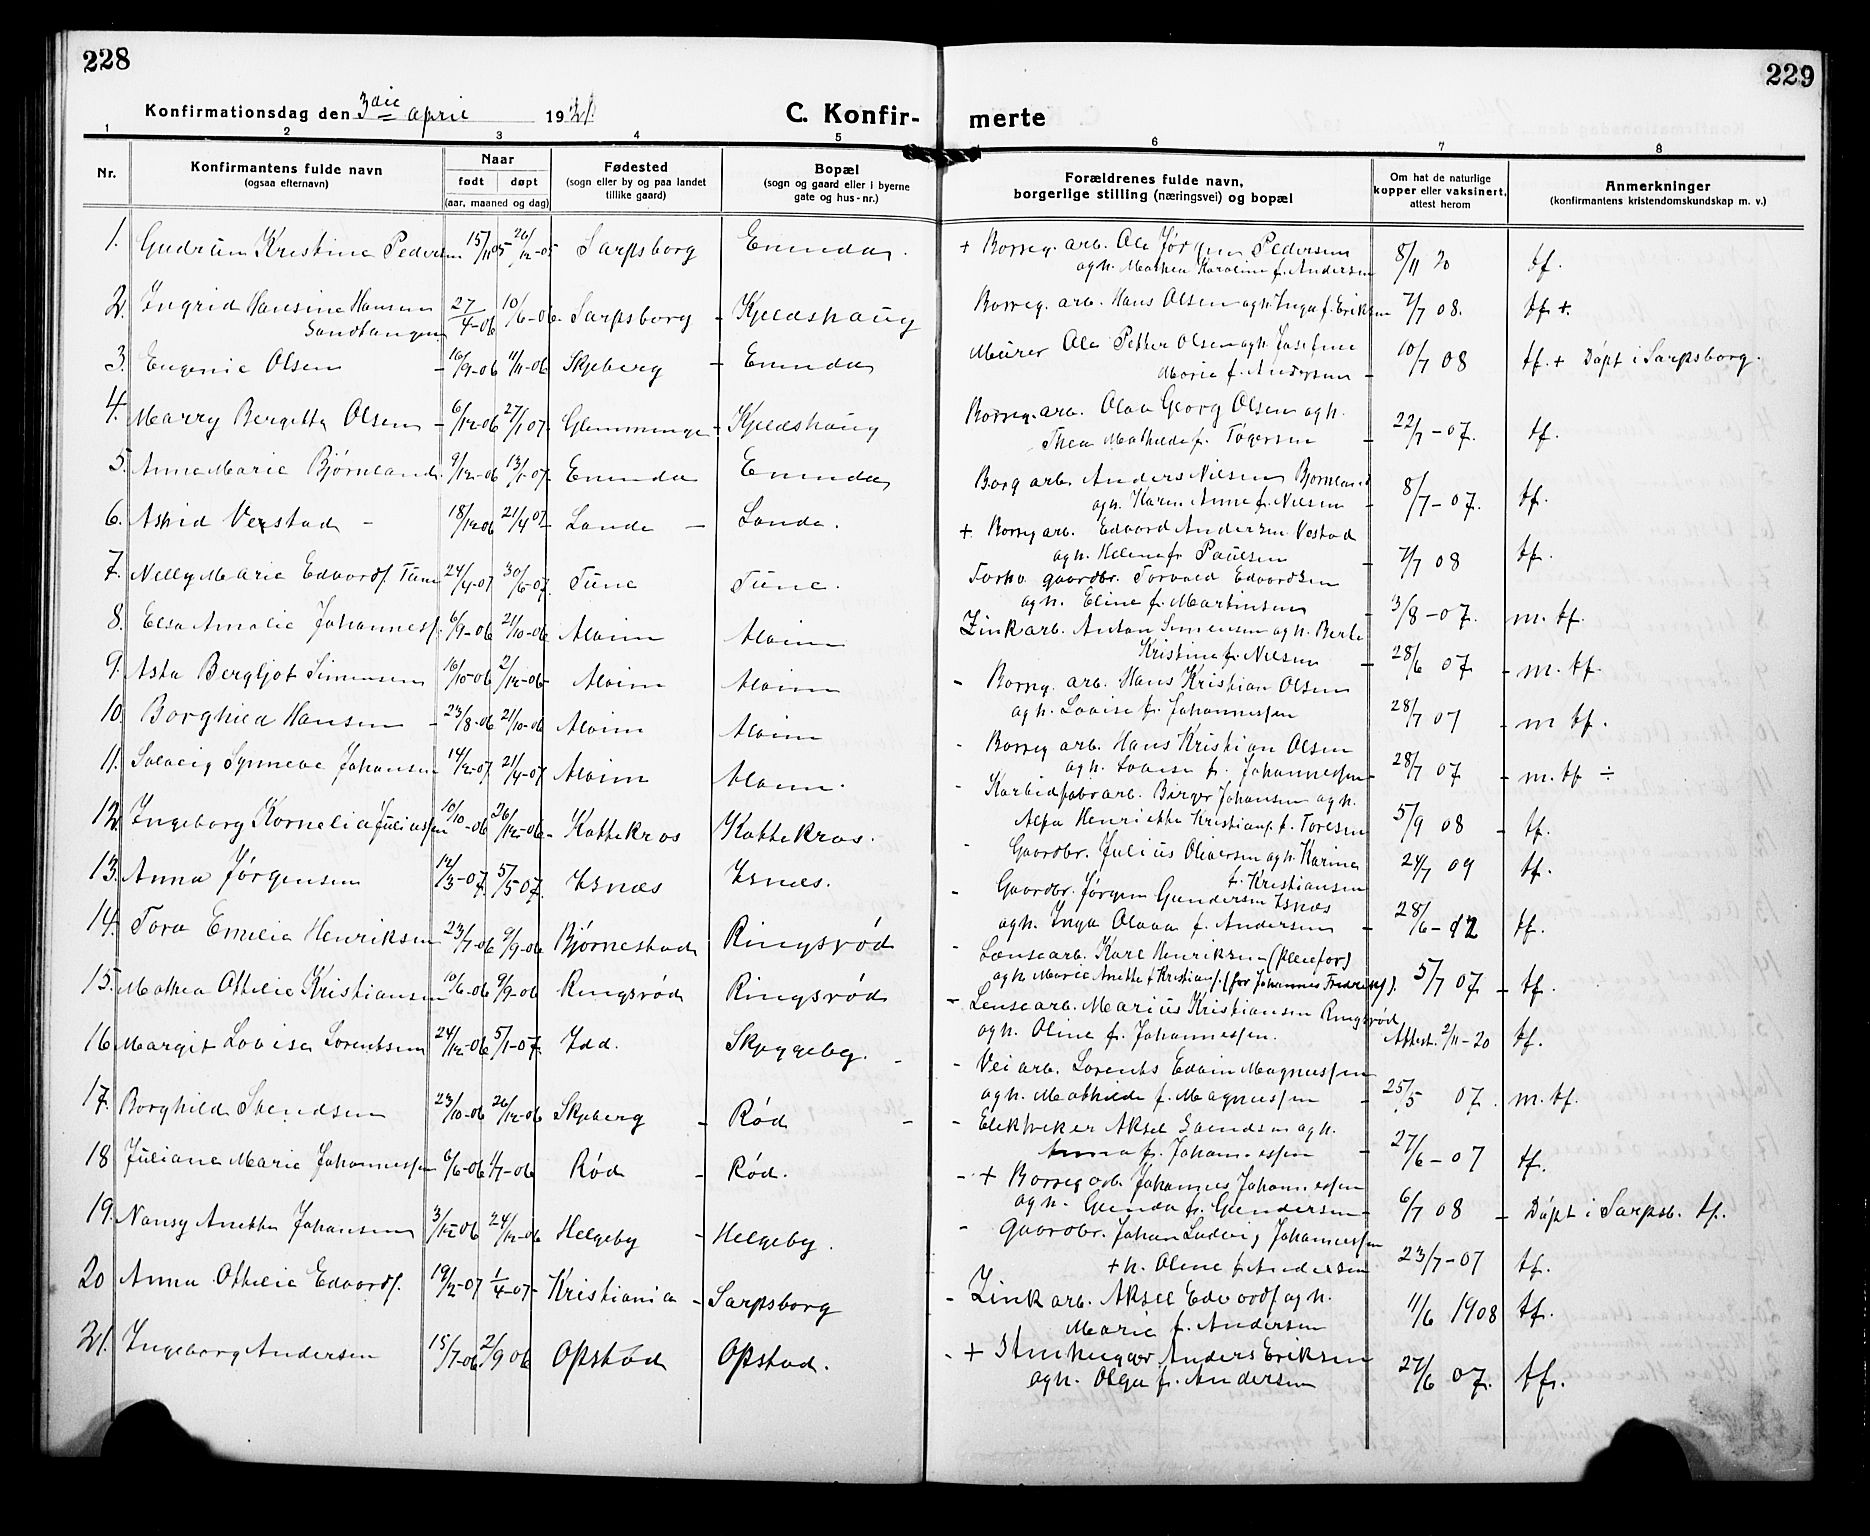 228
229
Konfirmationsdag den 3die april 1921.
C. Konfir-
merte
1 2 3 4 5 6 7 8
Nr.
Konfirmantens fulde navn
(ogsaa efternavn)
Naar
født døpt
(aar, maaned og dag)
Fødested
(sogn eller by og paa landet
tillike gaard)
Bopæl
(sogn og gaard eller i byerne
gate og hus-nr.)
Forældrenes fulde navn,
borgerlige stilling (næringsvei) og bopæl
Om hat de naturlige
kopper eller vaksinert,
attest herom
Anmerkninger
(konfirmantens kristendomskundskap m. v.)
1. Gudrun Kristine Pedersen 15/11 05 26/12-05 Sarpsborg Enenda.
+ Borreg. arb. Ole Jørgen Pedersen 8/11 20 tf.
agh. Mathea Karoline f. Andersen
2. Ingrid Hansine Hansen 27/4-06 10/6-06 Sarpsborg - Kjeldshaug
Sandtangen
Borreg. arb. Hans Olsen agh. Inga f. Eriksen 7/7 08. tf +.
3. Eugenie Olsen - 16/9-06 11/11-06 Skjeberg - Enenda
Murer Ole Petter Olsen agh. Josefine 10/7 08 tf. + Døpt i Sarpsborg.
Marie f. Andersen -
4. Marry Bergitta Olsen - 6/12-06 27/1 07. Glemminge - Kjeldshaug
Borreg. arb. Olaa Georg Olsen agh. 22/7-07. tf.
Thea Mathilde f. Tøgersen -
5. Anne Marie Bjørnland. 9/12-06 13/1-07. Enenda Enenda
Borg arb. Anders Nilsen Bjørnland 8/7-07. tf.
agh. Karen Anne f. Nilsen -
6. Astrid Vestad - 18/12-06 21/4 07 - Lande - Lande.
+ Borreg arb. Edvard Andersen Vestad 7/7 08 tf.
agh. Helene f. Paulsen -
7. Nelly Marie Edvardsf. Tune 24/4-07 30/6-07. Tune Tune.
Torho gaardbr. Torvald Edvardsen 3/8-07. m. tf.
agh. Eline f. Martinsen -
8. Elsa Amalie Johannesf. 6/9-06 21/10-06 Alvim Alvim
Zinkarb. Anton Simensen agh. Berte 28/6 07 - m. tf.
Kristine f. Nilsen -
9. Asta Bergljot Simensen 16/10-06 2/12-06 Alvim Alvim
- Borreg. arb. Hans Kristian Olsen 28/7 07 - m tf.
agh. Lovise f. Johannessen
10. Borghild Hansen - 23/8-06 21/10-06 Alvim Alvim
- Borreg arb. Hans Kristian Olsen 28/7 07 - m. tf ÷
agh. Lovise f. Johannessen -
11. Solveig Synneve Johansen 14/2-07 21/4-07 Alvim Alvim.
- Karbidfabrarb. Birger Johansen agh. 5/9 08 - tf.
Alfa Henriette Kristiansf. f. Toresen
12. Ingeborg Kornelia Juliussen 10/10-06 26/12-06- Kattekras Kattekras.
- Gaardbr. Julius Oliversen agh. Karine 24/7 09 tf.
f. Kristiansen
13. Anna Jørgensen 12/3-07. 5/5 07. Isnæs Isnæs.
- Gaardbr. Jørgen Gundersen Isnæs 28/6-12 tf.
agh. Inga Olava f. Andersen -
14. Tora Emilie Henriksen 23/7-06 9/9-06 Bjørnestad Ringsrød
- Lænsearb. Karl Henriksen - (pleiefor) 5/7 07. - tf.
agh Marie Anette f. Kristiansf. (for Johannes Fredriksf.).
15. Mathea Ottilie Kristiansen 10/6-06 9/9-06 Ringsrød Ringsrød
- Lensearb. Marius Kristiansen Ringsrød Attest. 2/11-20 tf.
agh. Oline f. Johannessen.
16. Margit Lovise Lorentsen 24/12-06 5/1-07. Idd. Skyggeby. -
- Veiarb. Lorents Edvin Magnussen 25/5 07. m. tf.
agh. Mathilde f. Magnussen -
17. Borghild Svendsen 23/10-06 26/12-06 Skjeberg - Rød -
- Elektriker Aksel Svendsen agh. 27/6-07 tf.
Anna f. Johannessen -
18 Juliane Marie Johannessen 6/6-06 1/7-06 Rød - Rød.
- + Borreg arb. Johannes Johannessen 6/7 08 - Døpt i Sarpsb. tf.
agh. Gunda f. Gundersen -
19. Nansy Anette Johansen 3/12 06 24/12-06 Helgeby - Helgeby.
- Gaardbr. Johan Ludvig Johannessen 23/7-07 tf.
+ h. Oline f. Andersen
20 Anna Ottilie Edvardsf. 19/2-07 1/4-07- Kristiania - Sarpsborg
- Zinkarb. Aksel Edvardsf agh. 11/6 1908 tf.
Marie f. Andersen
21. Ingeborg Andersen 15/7-06 2/9 06 Opstad Opstad.
- + Stenhugger Anders Eriksen 27/6 07. tf.
agh. Olga f. Andersen